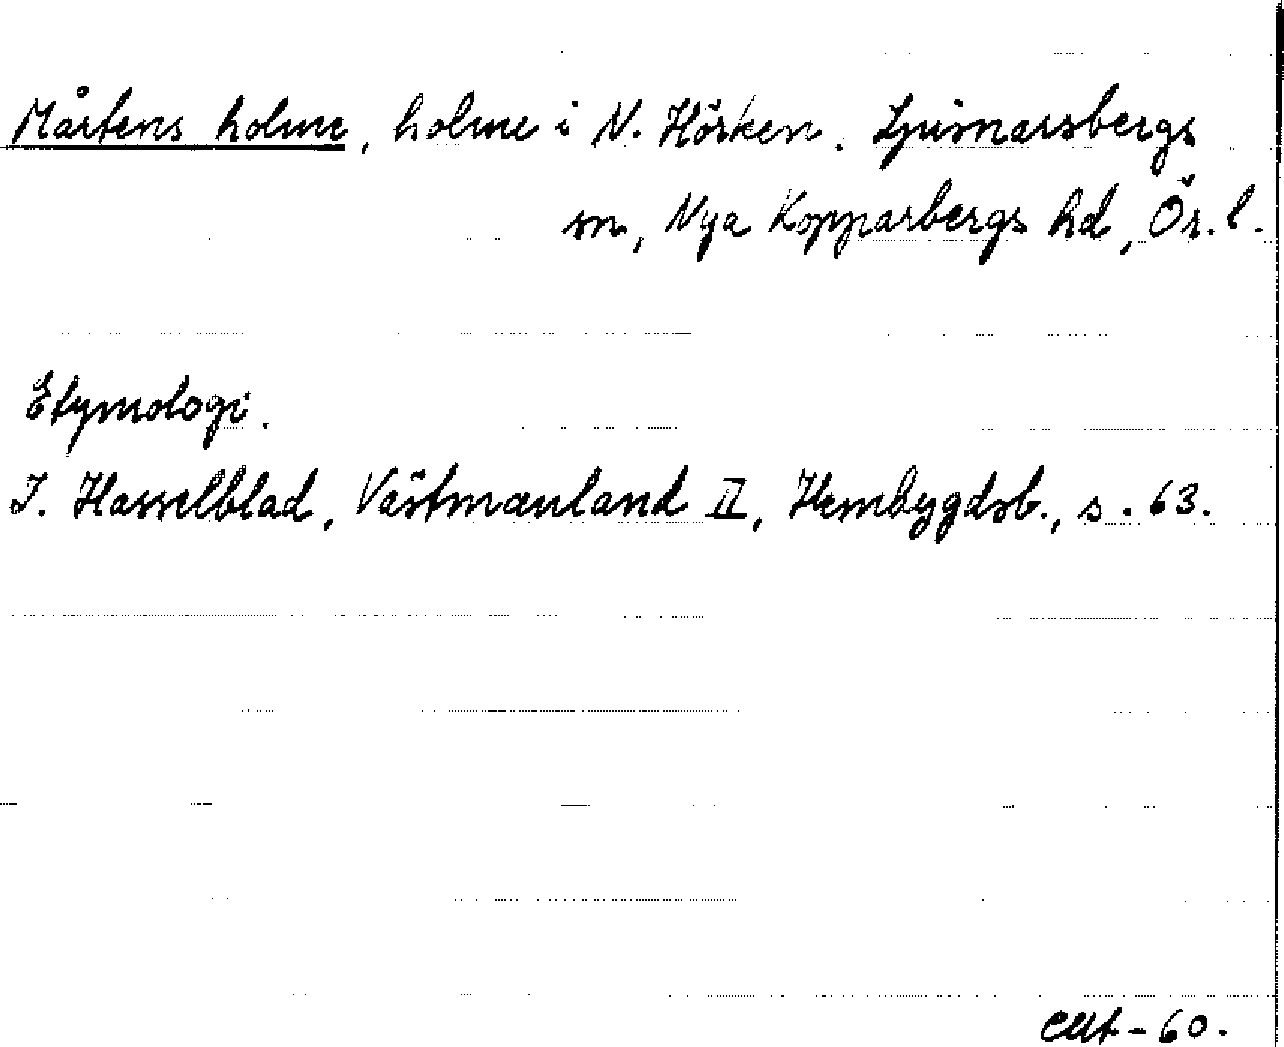 Mårtens holme, holme i N. Hörken. Ljusnarsbergs
sn, Nya Kopparbergs hd, Ör. l.
Etymologi.
I. Hasselblad, Västmanland II, Hembygdsb., s. 63.
60.